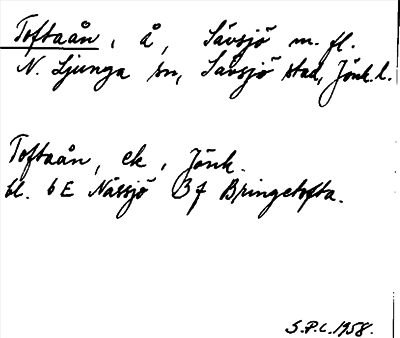 Toftaån, å, Sävsjö m. fl.
N. Ljunga sn, Sävsjö stad, Jönk. l.
Toftaån, ek, Jönk.
bl. 6 E Nässjö 3 f Bringetofta.
S.P.L. 1958.